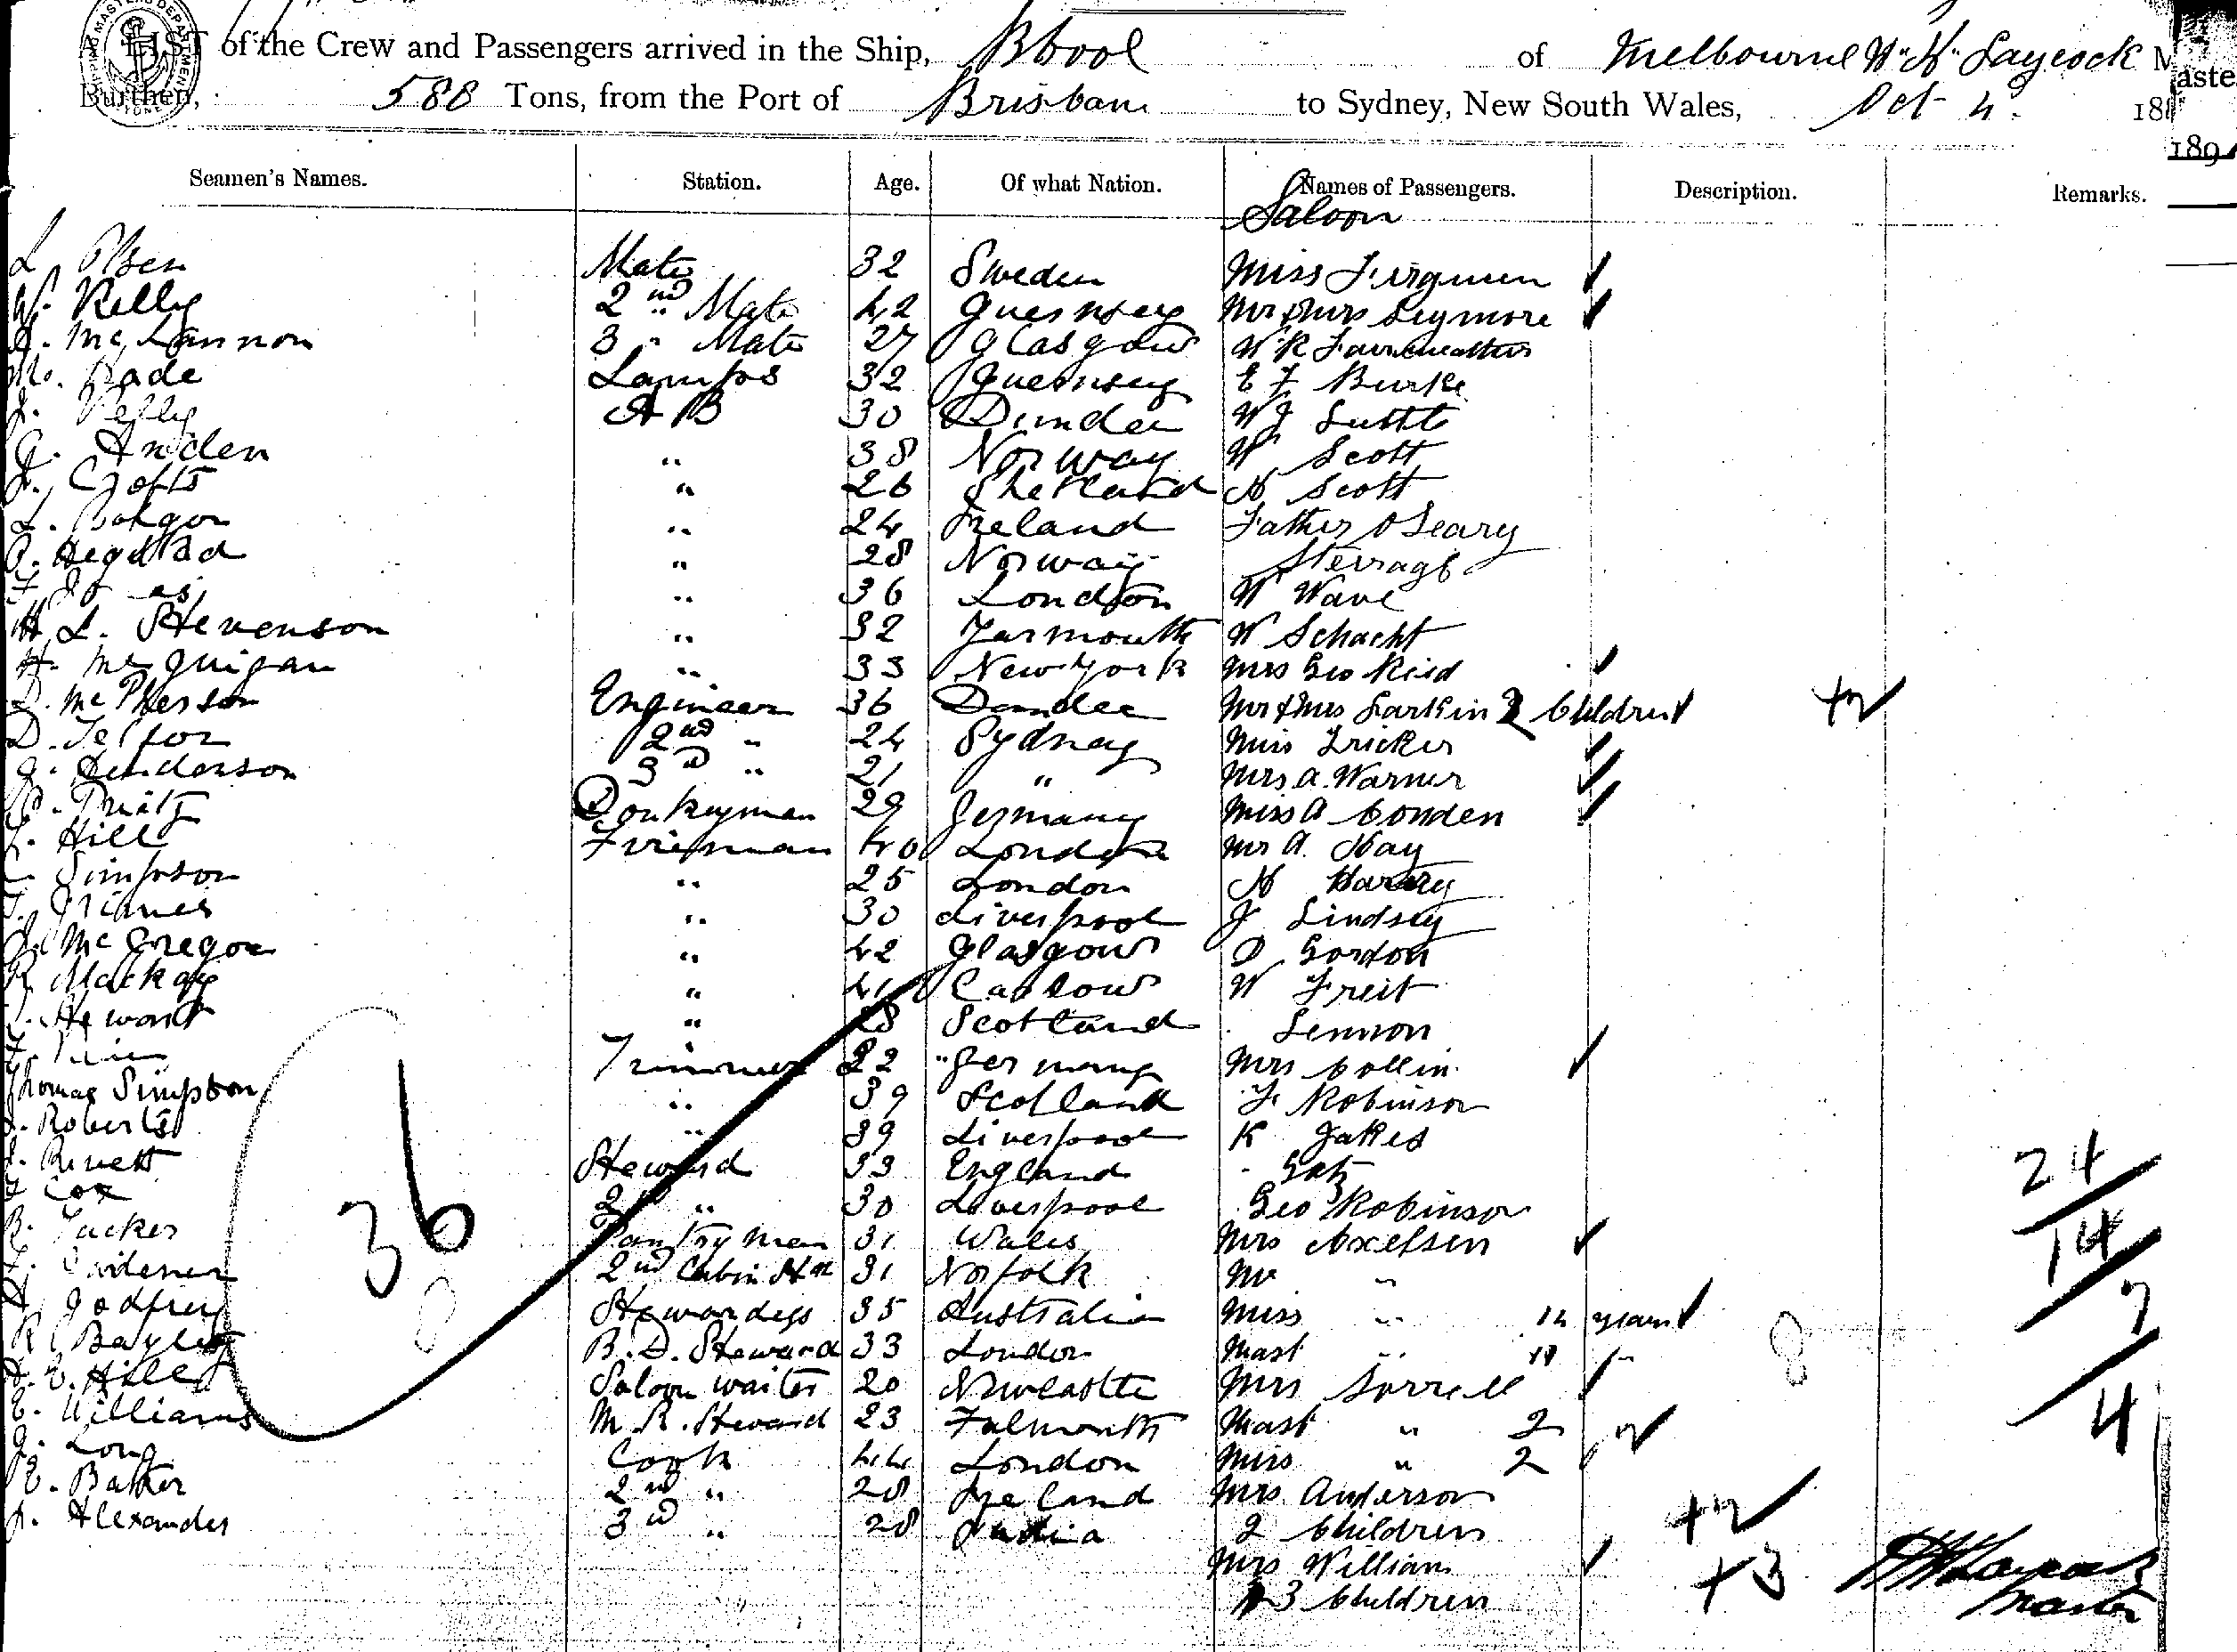 SHIPPING MASTER'S DEPARTMENT
LIST of the Crew and Passengers arrived in the Ship, Bbool of Melbourne W. H. Laycock M aste
Burthen, 588 Tons, from the Port of Brisbane to Sydney, New South Wales, Oct 4. 18
189
Seamen's Names. Station. Age. Of what Nation. Names of Passengers. Description. Remarks.
Saloon
L Olsen Mate 32 Sweden Miss Ferguson
W. Kelly 2nd Mate 42 Guernsey Mr & Mrs Seymore
Mc Lannon 3 " Mate 27 Glasgow W R Fairweather
Rade Lamps 32 Guernsey E F Burke
J. Kelly A B 30 Dundee W J Luttle
G. Anden " 38 Norway W Scott
J. Crofts " 26 Shetland H Scott
L. " 24 Ireland Father O Leary
" 28 Norway Sterrage
" 36 London W Wave
H L. Stevenson " 32 Yarmouth W Schacht
H. McGuigan " 33 New York Mrs Geo Reid
D. McPherson Engineer 36 Dundee Mr & Mrs Larkin 2 Children +2
D. Telfor 2nd " 24 Sydney Miss Tricker
J. Henderson 3rd " 21 " Mrs A. Warner
Donkeyman 29 Germany Miss A Conden
Hill Fireman 40 London Mr A. Hay
Simpson " 25 London H Harvey
Grimes " 30 Liverpool J Lindsey
McGregor " 42 Glasgow D Gordon
R Mackay " 41 Carlow W Freit
Stewart " 28 Scotland Lennon
Trimmer 22 " Germany Mrs Collin
Thomas Simpson " 39 Scotland F Robinson
Roberts " 39 Liverpool K Jakes
Rivett Steward 33 England
Cox 2 " 30 Liverpool Geo Robinson
36
24
B. Tucker Pantryman 31 Wales Mrs Axelsen
14
Gardener 2nd Cabin Std 31 Norfolk Mr "
Godfrey Stewardess 35 Australia Miss " 12 years
7
R Bayley B. D. Steward 33 London Mast " 8
8
E. Hill Saloon waiter 20 Newcastle Mrs Sorrell
E. Williams M. R. Steward 23 Falmouth Mast " 2
4
J. Long Cook 44 London Miss " 2
E. Baker 2nd " 28 Ireland Mrs Anderson
J. Alexander 3rd " 28 India 2 Children +2
Mrs William
3 Children +3
W H Laycock
Master